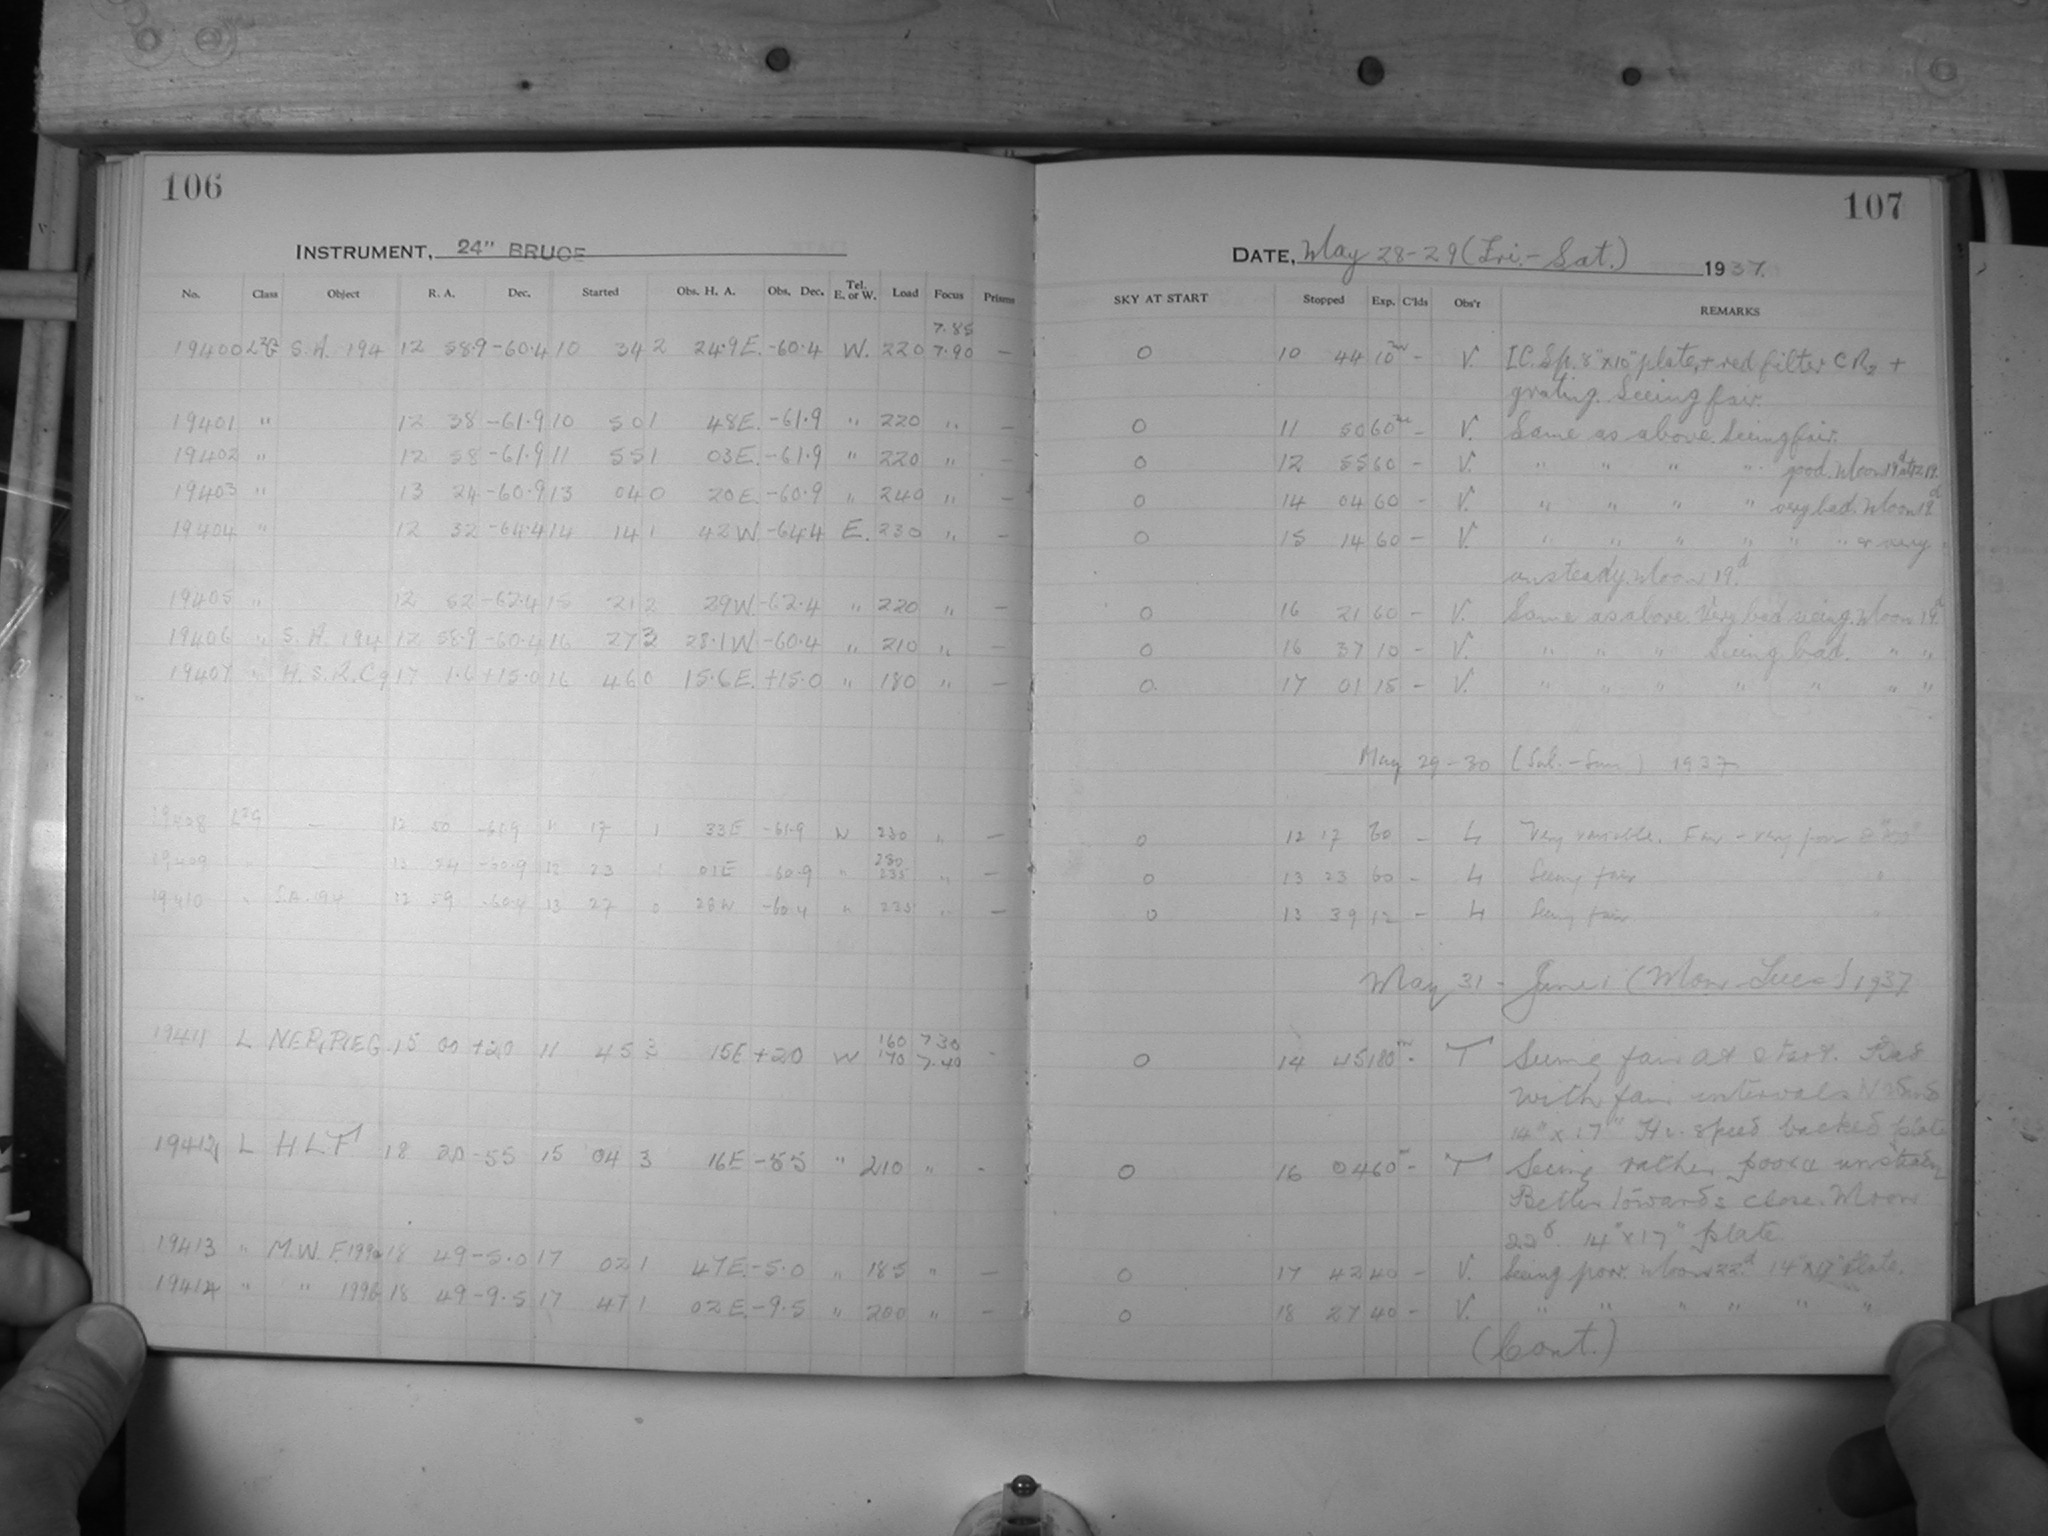 106
INSTRUMENT, 24" BRUCE
No. Class Object R. A. Dec. Started Obs. H. A. Obs. Dec. Tel. E. or W. Load Focus Prisms
7.85
19400 S. A. 194 12 58.9 -60.4 10 34 2 24.9 E. -60.4 W. 220 7.90 –
19401 " 12 38 -61.9 10 50 1 48 E. -61.9 " 220 " –
19402 " 12 58 -61.9 11 55 1 03 E. -61.9 " 220 " –
19403 " 13 24 -60.9 13 04 0 20 E. -60.9 " 240 " –
19404 " 12 32 -64.4 14 14 1 42 W. -64.4 E. 230 " –
19405 " 12 52 -62.4 15 21 2 29 W. -62.4 " 220 " –
19406 " S. A. 194 12 58.9 -60.4 16 27 3 28.1 W -60.4 " 210 " –
19407 " 17 1.6 +15.0 16 46 0 15.6 E. +15.0 " 180 " –
19408 – 12 50 -61.9 11 17 1 33 E -61.9 W 230 " –
230
19409 – 13 24 -60.9 12 23 1 01 E -60.9 " 235 " –
19410 " S.A. 194 12 59 -60.4 13 27 0 28 W -60.4 " 225 " –
160 7.30
19411 L 15 00 +20 11 45 3 15 E +20 W 170 7.40 -
19412 L HLT 18 20 -55 15 04 3 16 E -55 " 210 " -
19413 " M.W.F. 199a 18 49 -5.0 17 02 1 47 E. -5.0 " 185 " –
19414 " " 199b 18 49 -9.5 17 47 1 02 E. -9.5 " 200 " –
107
DATE, May 28-29 (Fri.- Sat.) 1937.
SKY AT START Stopped Exp. C'lds Obs'r REMARKS
0 10 44 10m - V. I C. Sp. 8"x10" plate + red filter C R2 +
grating. Seeing fair.
0 11 50 60m - V. Same as above. Seeing fair.
0 12 55 60 - V. " " " " good. Moon 19d
0 14 04 60 - V. " " " " very bad. Moon 19d
0 15 14 60 - V. " " " " " " & very
unsteady. Moon 19d
0 16 21 60 - V. Same as above. Very bad seeing. Moon 19d
0 16 37 10 - V. " " " Seeing bad. " "
0 17 01 15 - V. " " " " " " "
May 29-30 (Sat.-Sun.) 1937
0 12 17 60 - L Very variable. Fair - very poor
0 13 23 60 - L Seeing fair "
0 13 39 12 - L Seeing fair "
May 31 - June 1 (Mon-Tues) 1937
0 14 45 180m - T Seeing fair at start. Bad
with fair intervals
14" x 17" Hi-speed backed plate
0 16 04 60m - T Seeing rather poor & unsteady
Better towards close. Moon
22d. 14" x 17" plate
0 17 42 40 - V. Seeing poor. Moon 22d 14"x17" Plate.
0 18 27 40 - V. " " " " " "
(Cont.)